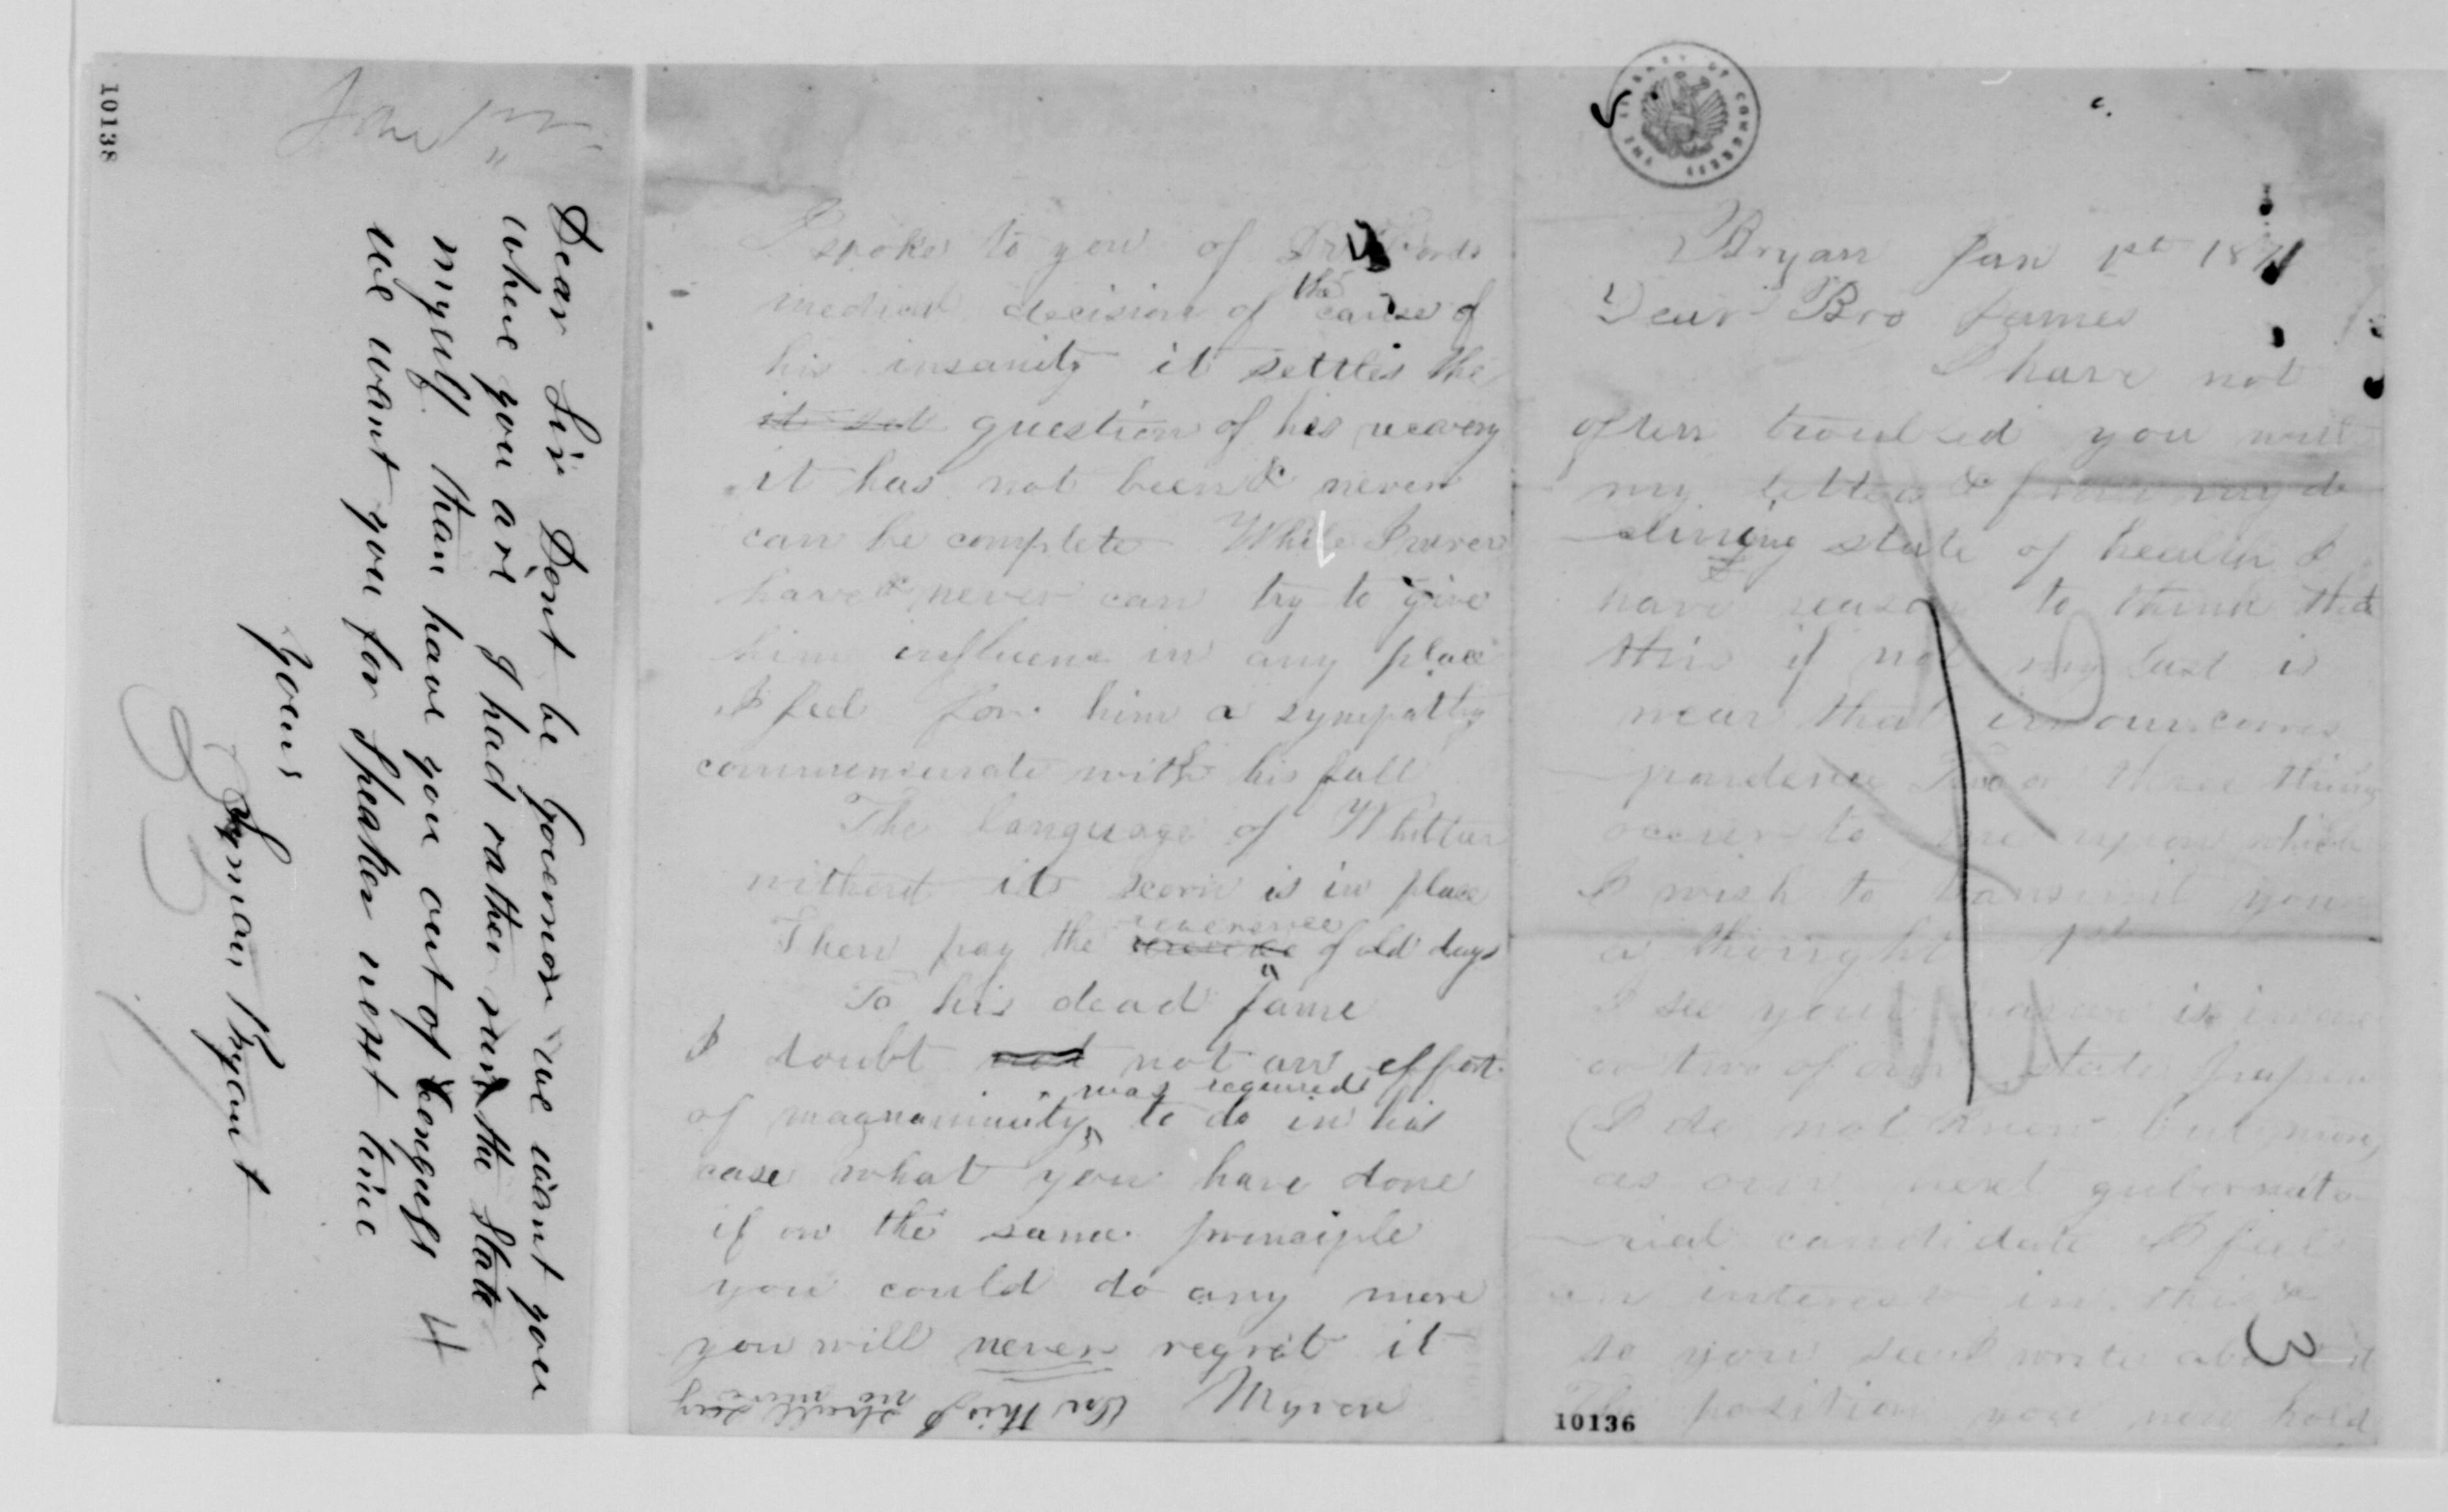 10138
Jan
Dear Sir Dont be Governor we want you
where you are I had rather run the State
myself than have you out of Congress 4
we want you for Speaker next time
Yours
Lyman Bryant
I spoke to you of
medical decision of the cause of
his insanity it settles the
it set question of his recovery
it has not been & never
can be complete While I never
have & never can try to give
him influence in any place
I feel for him a sympathy
commensurate with his fall
The language of Whittier
without its scorn is in place
Then pay the reverence of old days
To his dead fame
I doubt not not an effort
of magnanimity was required to do in his
case what you have done
if on the same principle
you could do any more
you will never regret it
Myron
On this I shall say
no more
THE LIBRARY OF CONGRESS
Bryan Jan 1st 1871
Dear Bro James
I have not
often troubled you with
my letters & from my de
clining state of health I
have reason to think that
this if not my last is
near that in our corres
pondence Two or three things
occur to me upon which
I wish to transmit you
a thought 1st
I see your name is in one
or two of our State papers
(I do not know but more)
as our next gubernato
rial candidate I feel
an interest in this &
so you see I write about it
The position you now hold
3
10136